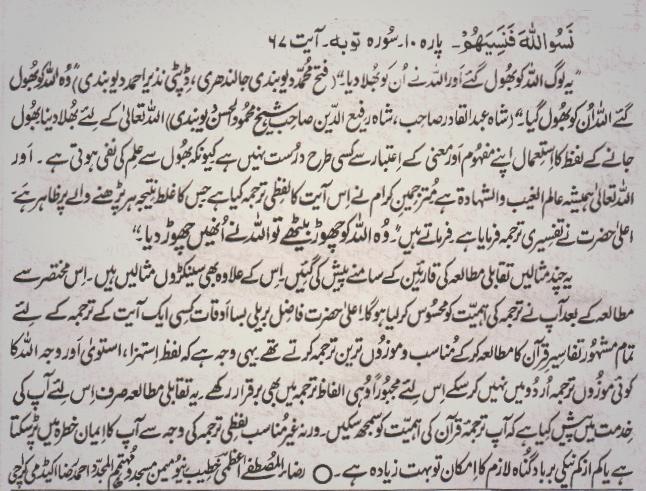 نَسُوا اللّٰهَ فَنَسِيَهُمْ۔ پارہ ۱۰۔ سُورہ توبہ۔ آیت ۶۷
”یہ لوگ اللہ کو بھول گئے اور اللہ نے اُن کو بھلا دیا۔“ (فتح محمد دیوبندی جالندھری، ڈپٹی نذیر احمد دیوبندی) ”وُہ اللہ کو بھول
گئے اللہ اُن کو بھول گیا۔“ (شاہ عبدالقادر صاحب، شاہ رفیع الدین صاحب، شیخ محمود الحسن دیوبندی) اللہ تعالیٰ کے لئے بھلا دینا، بھول
جانے کے لفظ کا اِستعمال اپنے مفہوم اور معنی کے اعتبار سے کسی طرح درست نہیں ہے کیونکہ بھول سے علم کی نفی ہوتی ہے۔ اور
اللہ تعالیٰ ہمیشہ عالم الغیب والشہادۃ ہے مُترجمین کرام نے اِس آیت کا لفظی ترجمہ کیا ہے جس کا غلط نتیجہ ہر پڑھنے والے پر ظاہر ہے۔
اعلیٰ حضرت نے تفسیری ترجمہ فرمایا ہے۔ فرماتے ہیں ”۔ وُہ اللہ کو چھوڑ بیٹھے تو اللہ نے اُنھیں چھوڑ دیا۔“
یہ چند مثالیں تقابلی مطالعہ کی قارئین کے سامنے پیش کی گئیں۔ اِس کے علاوہ بھی سینکڑوں مثالیں ہیں۔ اِس مختصر سے
مطالعہ کے بعد آپ نے ترجمہ کی اہمیّت کو محسُوس کرلیا ہوگا۔ اعلیٰ حضرت فاضل بریلی بسا اوقات کسی ایک آیت کے ترجمہ کے لئے
تمام مشہُور تفاسیر قرآن کا مطالعہ کرکے مُناسب و موزُوں ترین ترجمہ کرتے تھے۔ یہی وجہ ہے کہ لفظ اِستہزا، استویٰ اور وجہ اللہ کا
کوئی موزُوں ترجمہ اُردو میں نہیں کرسکے اِس لئے مجبُوراً وُہی الفاظ ترجمہ میں بھی برقرار رکھے۔ یہ تقابلی مطالعہ صرف اِس لئے آپ کی
خِدمت میں پیش کیا ہے کہ آپ ترجمۂ قرآن کی اہمیّت کو سمجھ سکیں۔ ورنہ غیر مُناسب لفظی ترجمہ کی وجہ سے آپ کا اِیمان خطرہ میں پڑسکتا
ہے یا کم از کم نیکی برباد گُناہ لازم کا اِمکان تو بہت زیادہ ہے۔ ○ رضاءالمصطفےٰ اعظمی خطیب نیو میمن مسجد و مہتمم المجدّد احمد رضا اکیڈمی کراچی